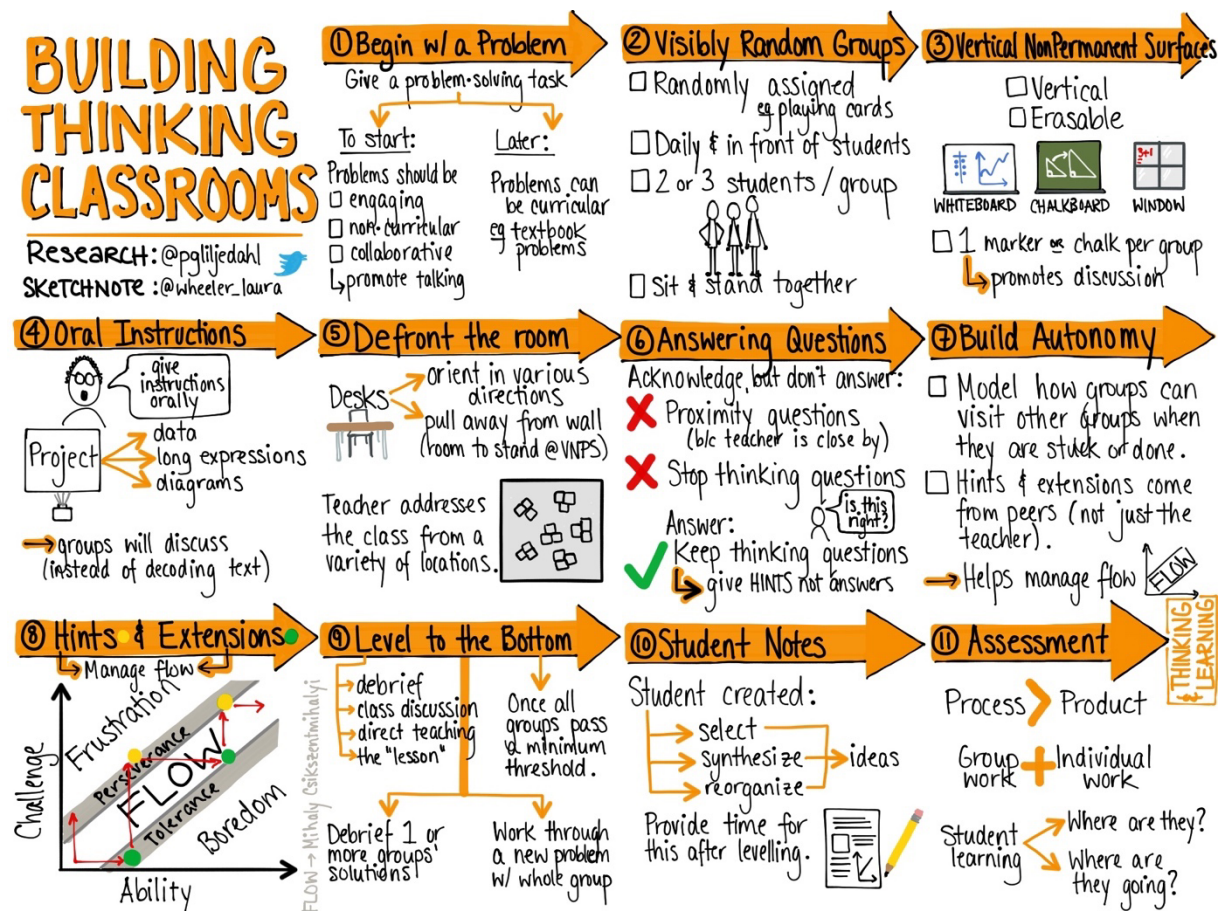 BUILDING
THINKING
CLASSROOMS
RESEARCH: @pgliljedahl
SKETCHNOTE: @wheeler_laura
① Begin w/ a Problem
Give a problem-solving task
To start:
Problems should be
engaging
non-curricular
collaborative
promote talking
Later:
Problems can
be curricular
eg textbook
problems
② Visibly Random Groups
Randomly assigned
eg playing cards
Daily & in front of students
2 or 3 students / group
Sit & stand together
③ Vertical NonPermanent Surfaces
Vertical
Erasable
WHITEBOARD
CHALKBOARD
3+1
WINDOW
1 marker or chalk per group
promotes discussion
④ Oral Instructions
give
instructions
orally
Project
data
long expressions
diagrams
groups will discuss
(instead of decoding text)
⑤ Defront the room
Desks
orient in various
directions
pull away from wall
(room to stand @VNPS)
Teacher addresses
the class from a
variety of locations.
⑥ Answering Questions
Acknowledge, but don't answer:
Proximity questions
(b/c teacher is close by)
Stop thinking questions
is this
right?
Answer:
Keep thinking questions
give HINTS not answers
⑦ Build Autonomy
Model how groups can
visit other groups when
they are stuck or done.
Hints & extensions come
from peers (not just the
teacher).
Helps manage flow
FLOW
⑧ Hints & Extensions
Manage flow
Challenge
Frustration
Perseverance
FLOW
Tolerance
Boredom
Ability
FLOW → Mihaly Csikszentmihalyi
⑨ Level to the Bottom
debrief
class discussion
direct teaching
the "lesson"
Once all
groups pass
a minimum
threshold.
Debrief 1 or
more groups'
solutions
Work through
a new problem
w/ whole group
⑩ Student Notes
Student created:
select
synthesize
reorganize
ideas
Provide time for
this after levelling.
⑪ Assessment
Process > Product
Group
work
+
Individual
work
Student
learning
Where are they?
Where are
they going?
THINKING
& LEARNING